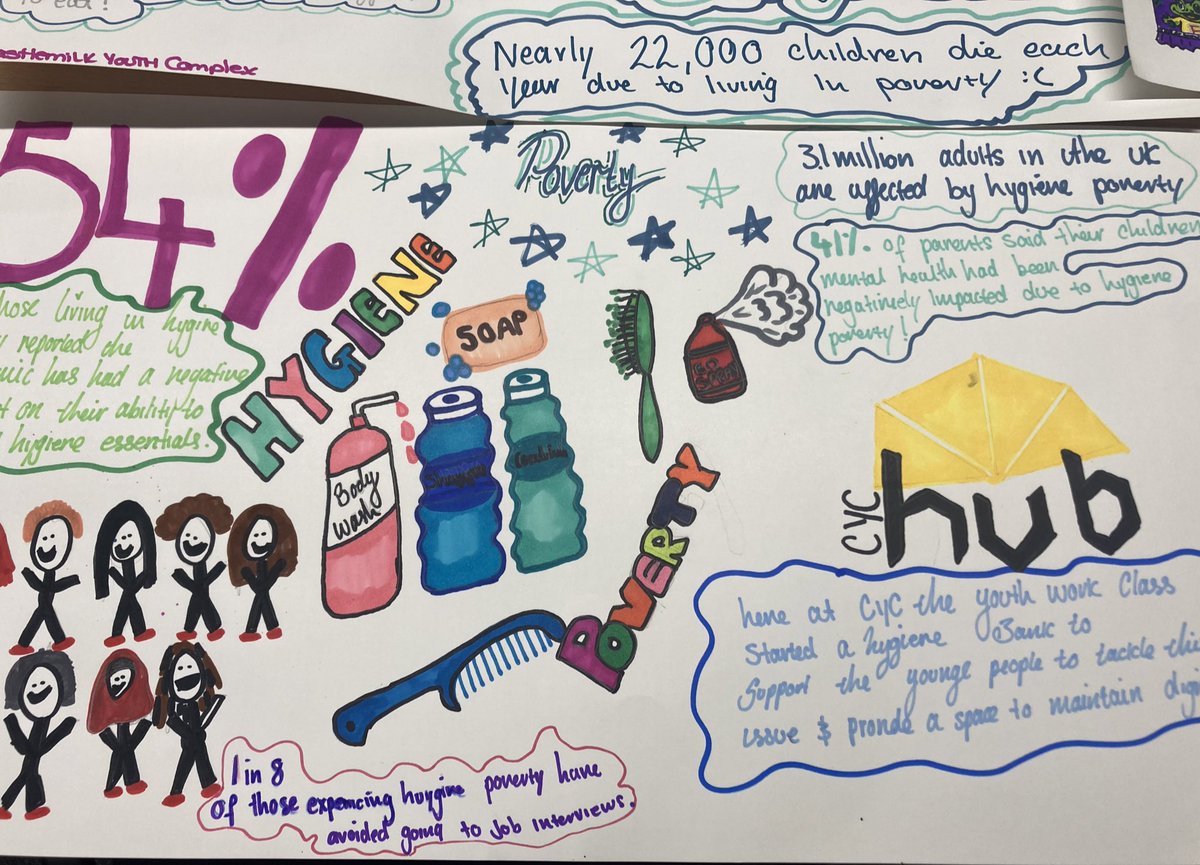 Castlemilk Youth Complex
Nearly 22,000 children die each
year due to living in poverty :(
54%
Poverty
3.1 million adults in the UK
are affected by hygiene poverty
41% of parents said their children
mental health had been
negatively impacted due to hygiene
poverty!
those living in hygine
reported the
has had a negative
on their ability to
hygiene essentials.
HYGIENE
SOAP
Body
Wash
Shampoo
POVERTY
CYC
hub
here at CYC the youth work Class
started a hygiene Bank to
support the younge people to tackle this
issue & provide a space to maintain
1 in 8
of those expencing huygine poverty have
avoided going to Job interviews.